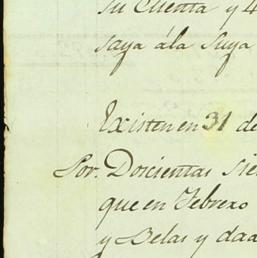 su Cuenta y 4
saya ála suya
Existen en 31 de
Por. Dorcientas sie
que en Febrero
y Belas y daa